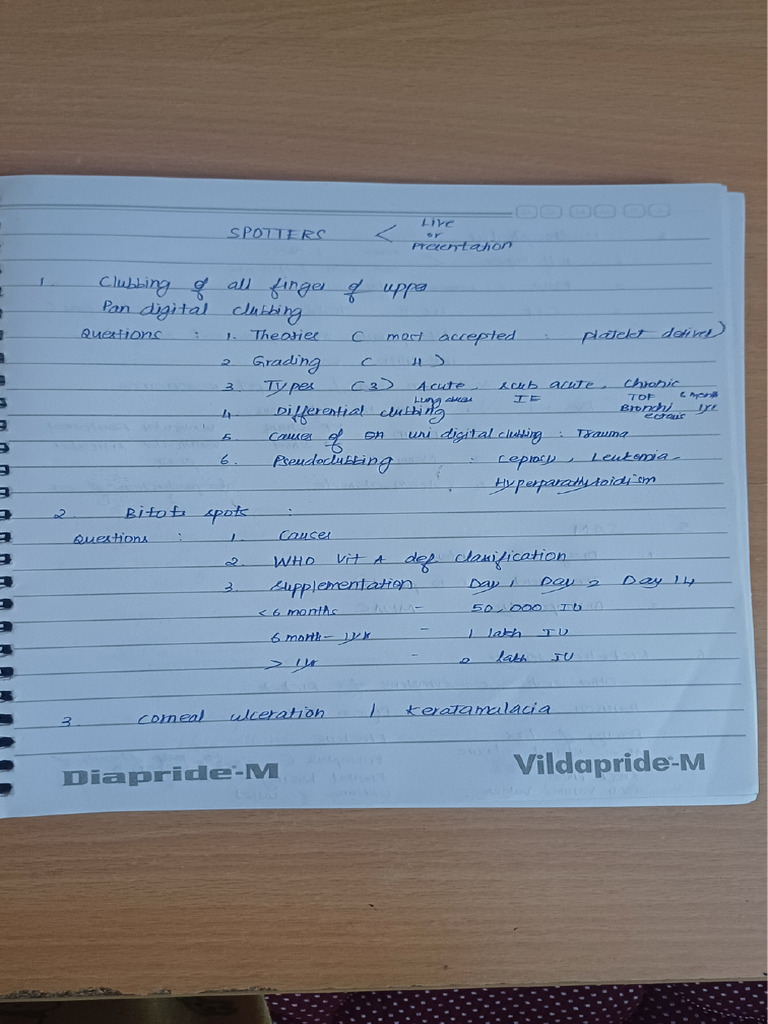 SPOTTERS < Live
or
Presentation
1. Clubbing of all finger of upper
Pan digital clubbing
Questions : 1. Theories ( most accepted : platelet deliver)
2 Grading ( 4 )
3. Types (3) Acute, sub acute, chronic
Lung abcess IE TOF 6 month
4. Differential clubbing Bronchi 1yr
ectasis
5. Causes of on uni digital clubbing : Trauma
6. Pseudoclubbing : Leprosy, Leukemia,
Hyperparathyroidism
2. Bitots spots :
Questions : 1. Causes
2. WHO Vit A def classification
3. Supplementation Day 1 Day 2 Day 14
< 6 months - 50,000 IU
6 month - 1yr - 1 lakh IU
> 1yr - 2 lakh IU
3. Corneal ulceration / Keratamalacia
Diapride®-M Vildapride-M